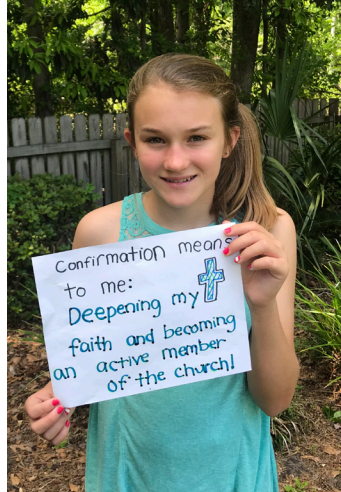 Confirmation means
to me:
Deepening my
faith and becoming
an active member
of the church!